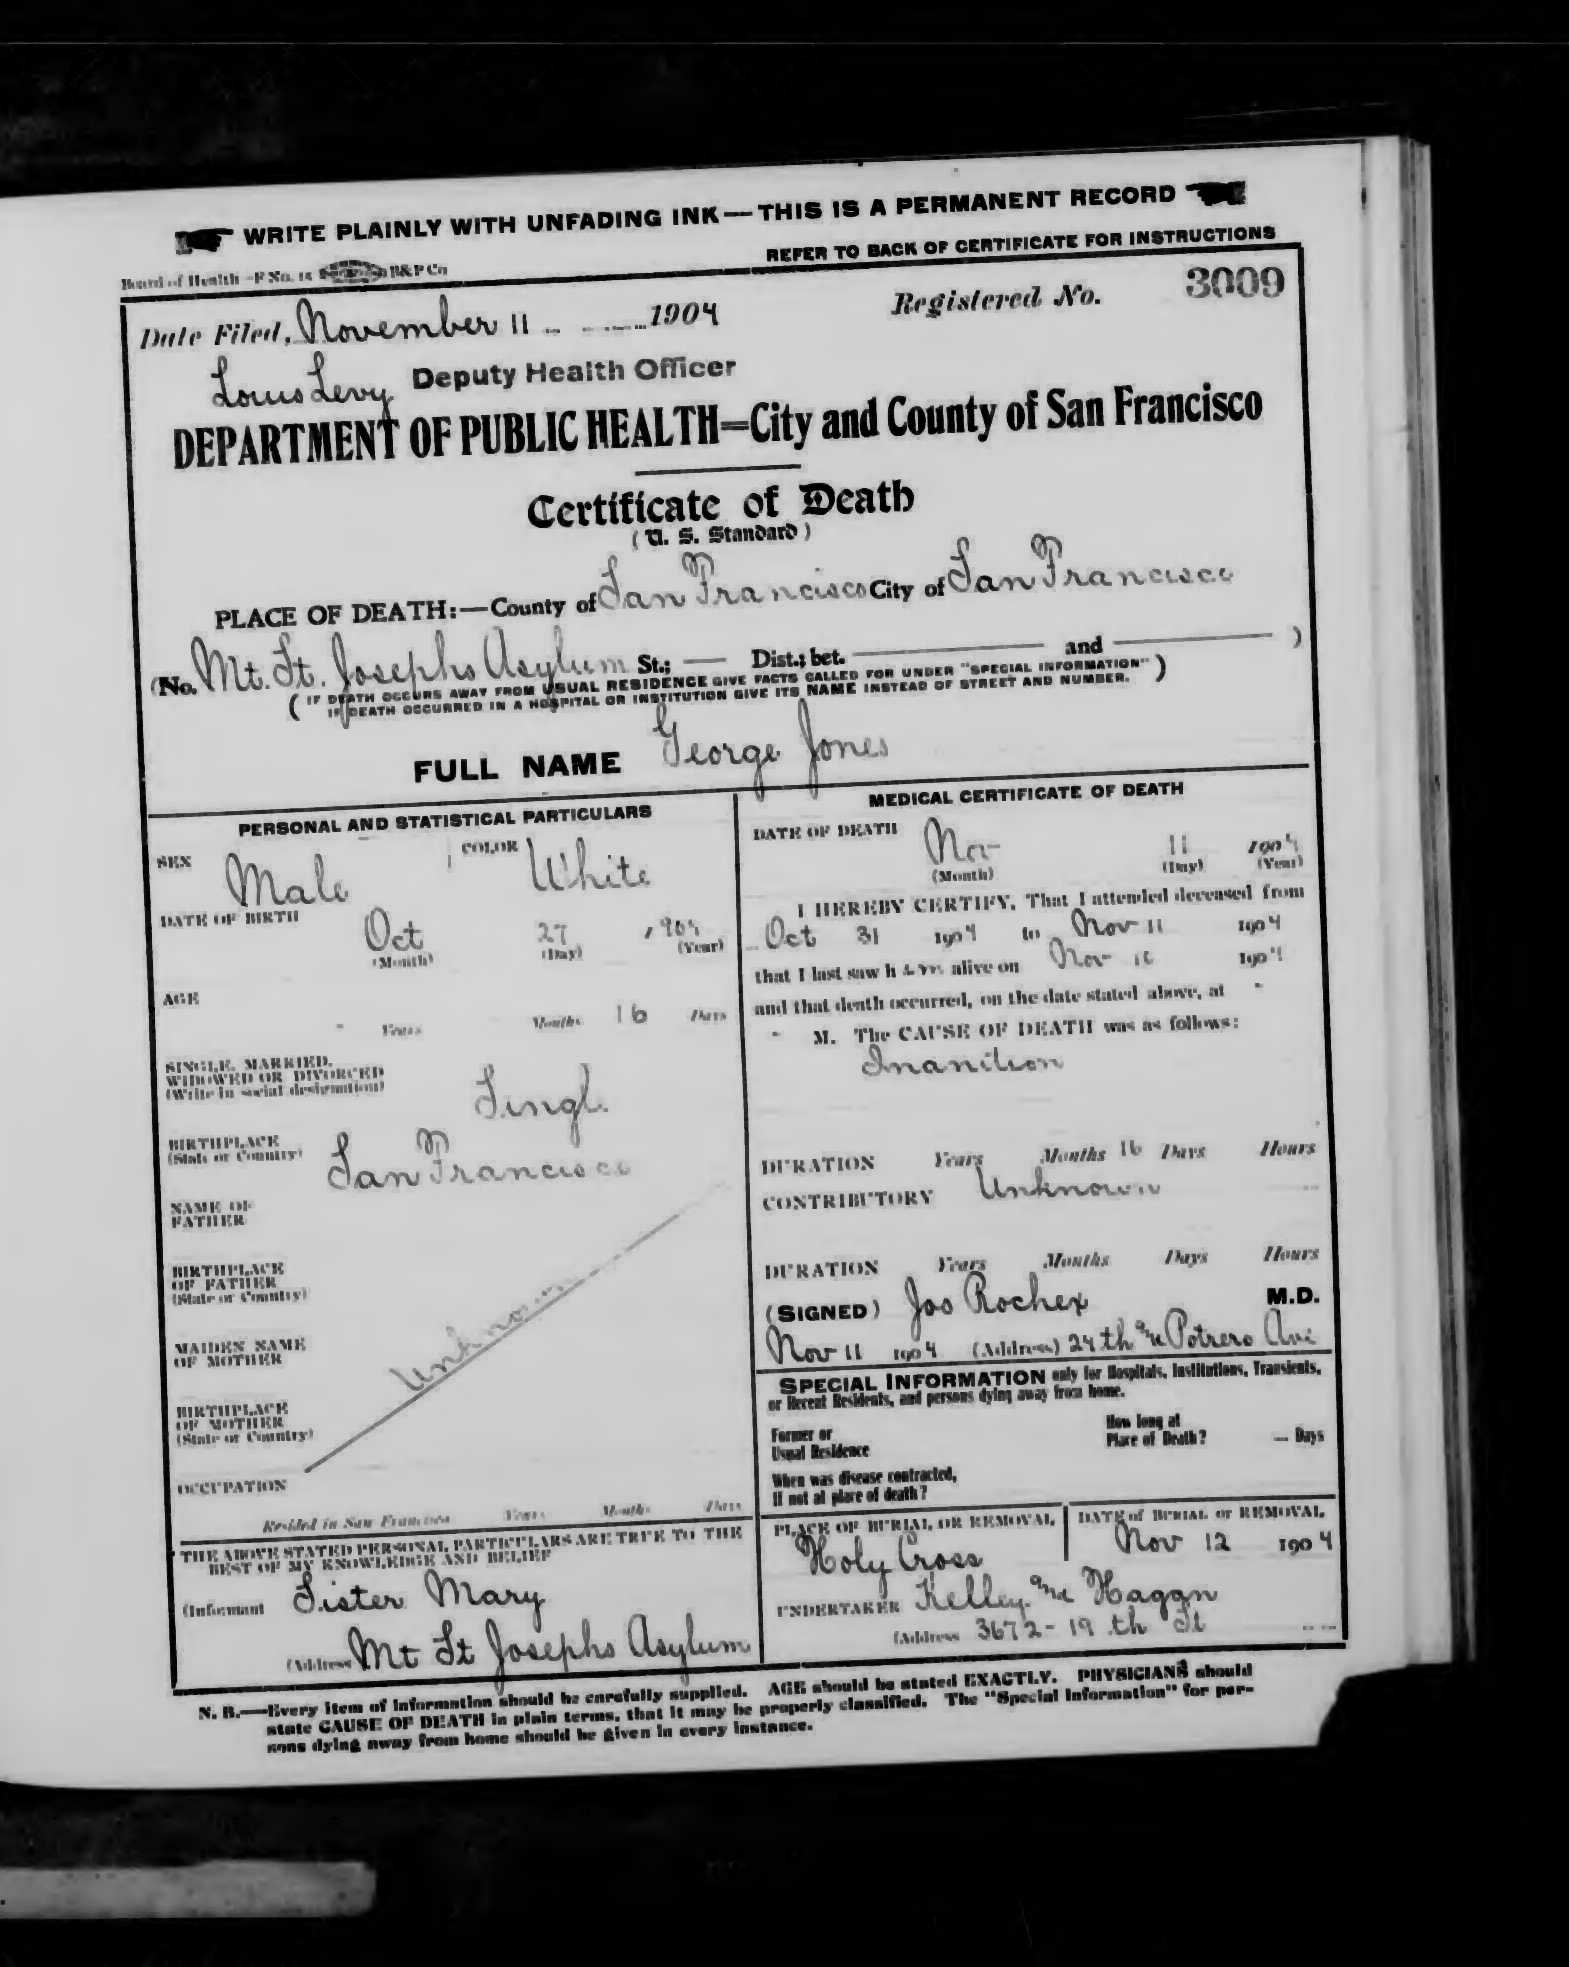 WRITE PLAINLY WITH UNFADING INK — THIS IS A PERMANENT RECORD
REFER TO BACK OF CERTIFICATE FOR INSTRUCTIONS
Board of Health - F No. 15 B&P Co
Date Filed, November 11 1904 Registered No. 3009
Louis Levy Deputy Health Officer
DEPARTMENT OF PUBLIC HEALTH=City and County of San Francisco
Certificate of Death
(U. S. Standard)
PLACE OF DEATH:—County of San Francisco City of San Francisco
(No. Mt. St. Josephs Asylum St.; — Dist.; bet. — and — )
( IF DEATH OCCURS AWAY FROM USUAL RESIDENCE GIVE FACTS CALLED FOR UNDER "SPECIAL INFORMATION" )
IF DEATH OCCURRED IN A HOSPITAL OR INSTITUTION GIVE ITS NAME INSTEAD OF STREET AND NUMBER.
FULL NAME George Jones
PERSONAL AND STATISTICAL PARTICULARS
SEX Male COLOR White
DATE OF BIRTH Oct 27 1904
(Month) (Day) (Year)
AGE
- Years Months 16 Days
SINGLE, MARRIED,
WIDOWED OR DIVORCED
(Write in social designation) Single
BIRTHPLACE
(State or Country) San Francisco
NAME OF
FATHER
BIRTHPLACE
OF FATHER
(State or Country)
Unknown
MAIDEN NAME
OF MOTHER
BIRTHPLACE
OF MOTHER
(State or Country)
OCCUPATION
Resided in San Francisco Years Months Days
THE ABOVE STATED PERSONAL PARTICULARS ARE TRUE TO THE
BEST OF MY KNOWLEDGE AND BELIEF
(Informant Sister Mary
(Address Mt St Josephs Asylum
MEDICAL CERTIFICATE OF DEATH
DATE OF DEATH Nov 11 1904
(Month) (Day) (Year)
I HEREBY CERTIFY, That I attended deceased from
Oct 31 1904 to Nov 11 1904
that I last saw h im alive on Nov 10 1904
and that death occurred, on the date stated above, at -
- M. The CAUSE OF DEATH was as follows:
Inanition
DURATION Years Months 16 Days Hours
CONTRIBUTORY Unknown
DURATION Years Months Days Hours
(SIGNED) Jos Rochex M.D.
Nov 11 1904 (Address) 24th and Potrero Ave
SPECIAL INFORMATION only for Hospitals, Institutions, Transients,
or Recent Residents, and persons dying away from home.
Former or
Usual Residence
How long at
Place of Death? — Days
When was disease contracted,
If not at place of death?
PLACE OF BURIAL OR REMOVAL
Holy Cross
DATE of BURIAL or REMOVAL
Nov 12 1904
UNDERTAKER Kelley and Hagan
(Address 3672-19th St
N. B.—Every item of information should be carefully supplied. AGE should be stated EXACTLY. PHYSICIANS should
state CAUSE OF DEATH in plain terms, that it may be properly classified. The "Special Information" for per-
sons dying away from home should be given in every instance.